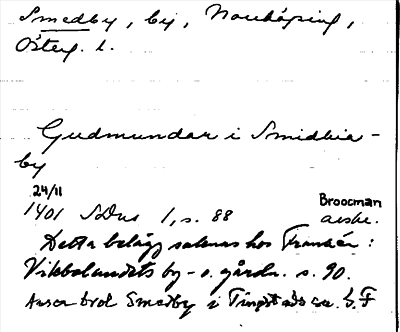 Smedby, by, Norrköping,
Österg. l.
Gudmundar i Smidhia-
by
24/11
1401 SDns 1, s. 88 Broocman
avskr.
Detta belägg saknas hos Franzén:
Vikbolandets by- o. gårdn. s. 90.
Anser brol Smedby i Tingstads sn. G. F